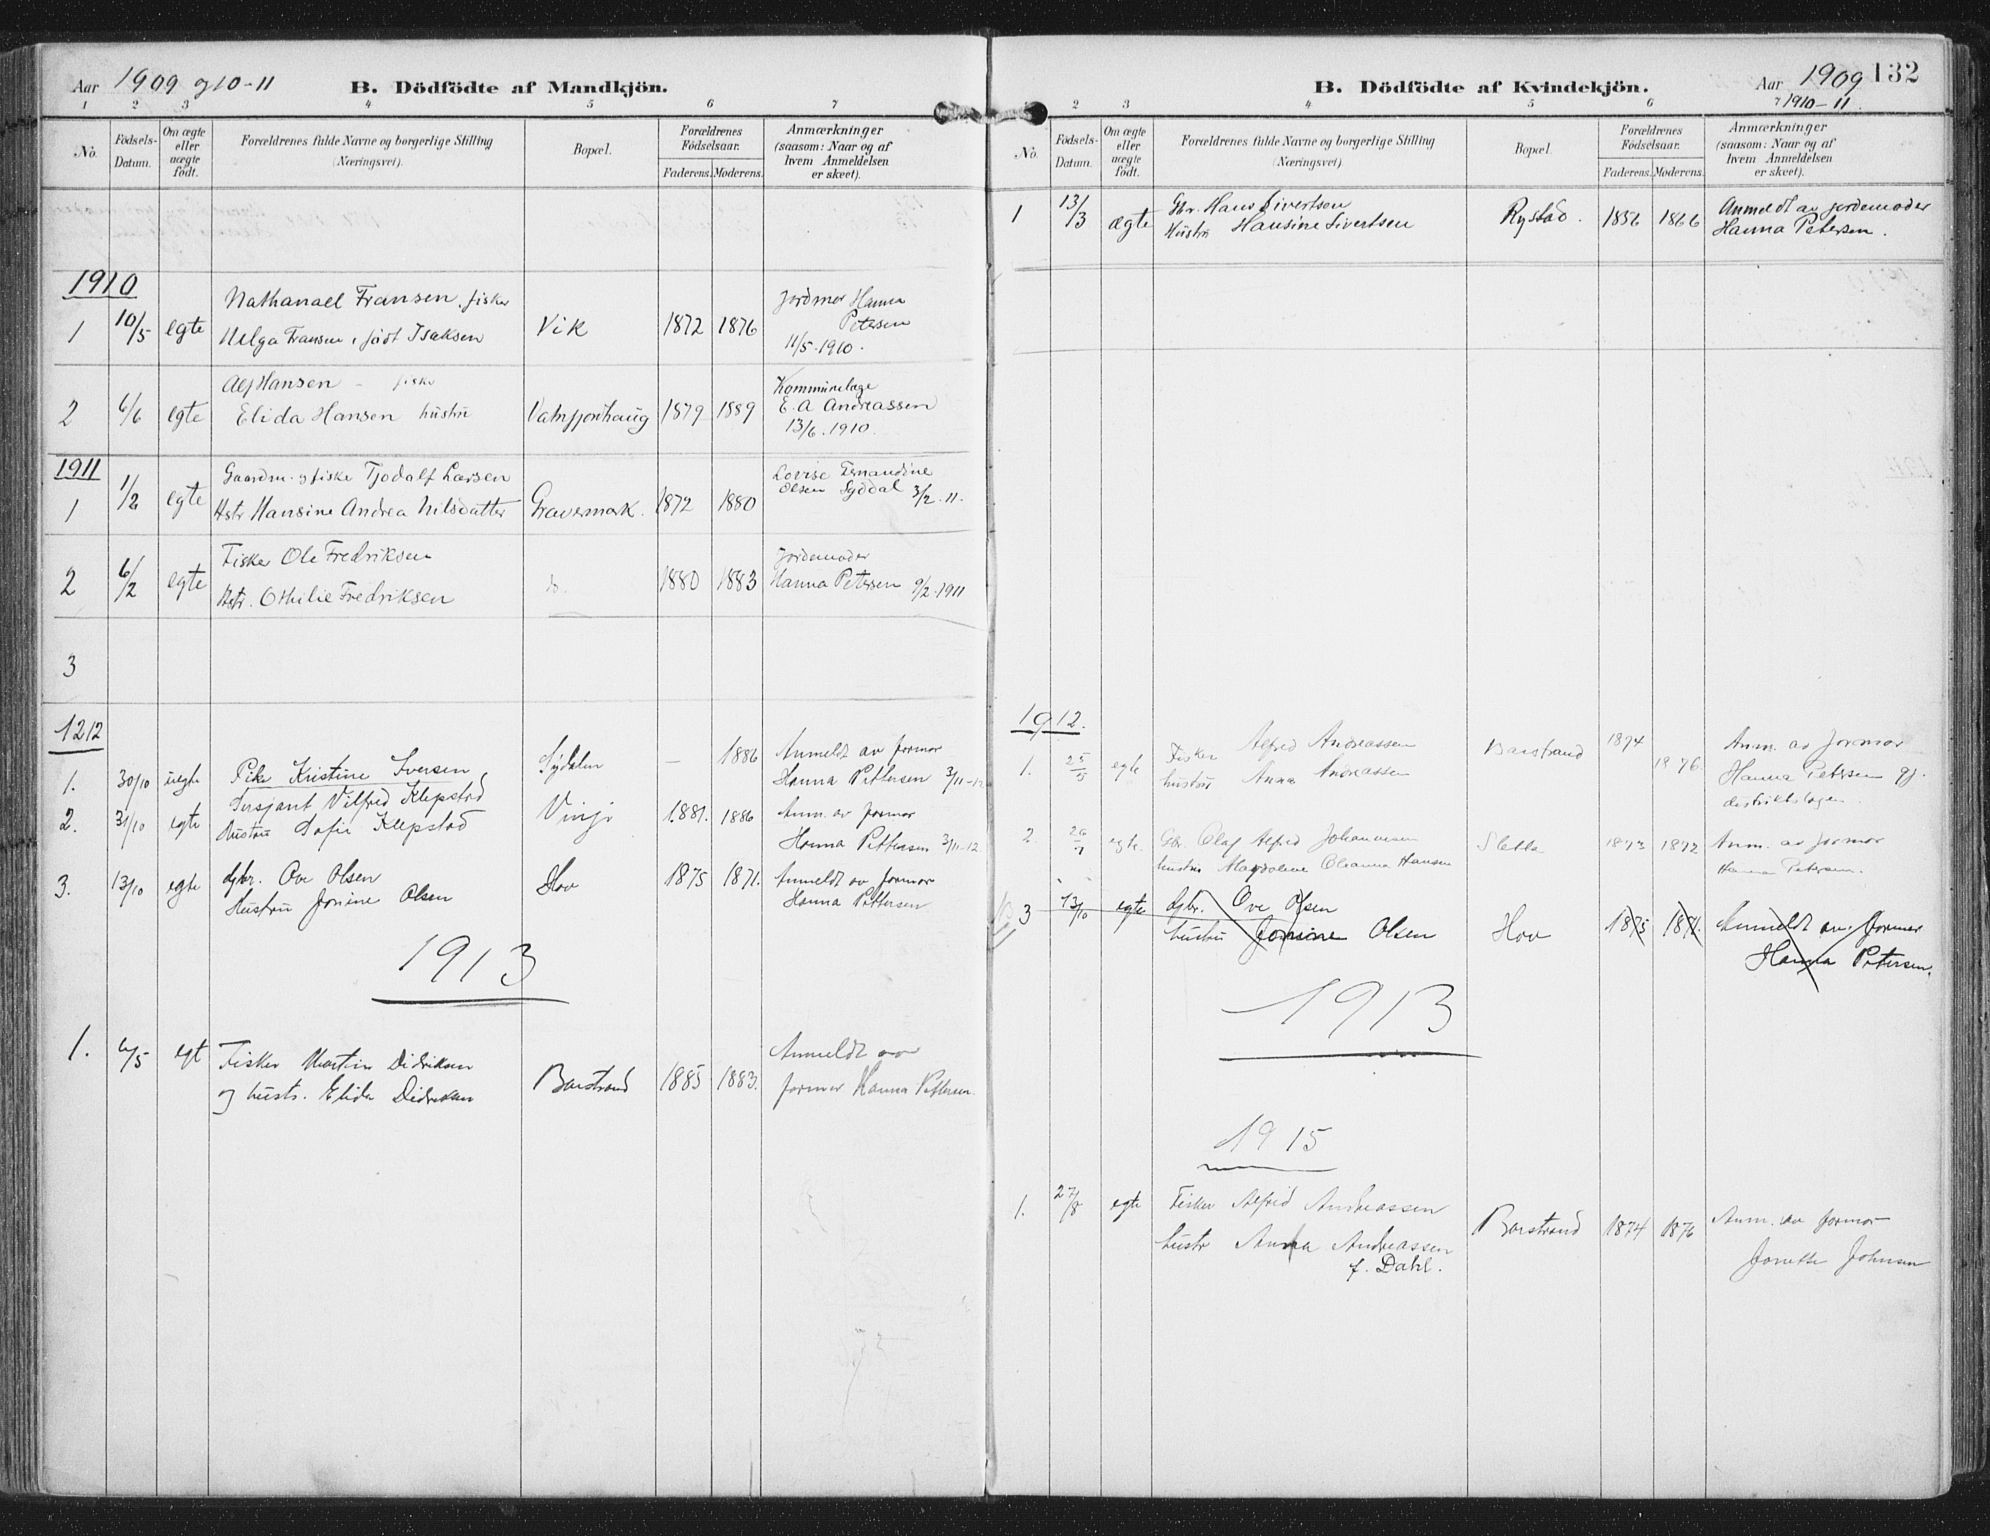 Aar 1909 og 10-11
B. Dödfödte af Mandkjön.
1 2 3 4 5 6 7
No.
Födsels-
Datum.
Om ægte
eller
uægte
födt.
Forældrenes fulde Navne og borgerlige Stilling
(Næringsvei).
Bopæl.
Forældrenes
Födselsaar.
Faderens. Moderens.
Anmærkninger
(saasom: Naar og af
hvem Anmeldelsen
er skeet).
1910
Nathanael Fransen, fisker
1 10/5 egte Helga Fransen, født Isaksen Vik 1872 1876
Jordmor Hanna
Petersen
11/5.1910.
Alf Hansen - fisker
2 6/6 egte Elida Hansen hustru Vatnfjorhaug 1879 1889
Kommunelæge
E. A Andreassen
13/6.1910.
1911
Gaardm. og fisker Tjodalf Larsen
1 1/2 egte Hstr Hansine Andrea Nilsdatter Gravermark. 1872 1880
Lovise Fernandine
Olsen Syddal 3/2.11.
Fisker Ole Fredriksen
2 6/2 egte Hstr. Othilie Fredriksen 1880 1883
Jordemoder
Hanna Petersen 9/2.1911
3
1212
1. 30/10 uegte Pike Kristine Iversen Sydalen — 1886
Anmeldt av jormor
Hanna Pettersen 3/11-12
2. 31/10 egte Sersjant Vilfred Klepstad
Hustru Sofie Klepstad Vinje 1881. 1886
Anm. av jormor
Hanna Pettersen 3/11-12
3. 13/10 egte gbr. Ove Olsen
Hustru Jonine Olsen Hov 1875 1871.
Anmeldt av jormor
Hanna Pettersen
1913
1. 6/5 egt Fisker Martin Didriksen
og husts. Elida Didriksen Barstrand 1885 1883.
Anmeldt av
jormor Hanna Pettersen.
B. Dödfödte af Kvindekjön.
Aar 1909 132
1910-11.
2 3 4 5 6
No.
Födsels-
Datum.
Om ægte
eller
uægte
födt.
Forældrenes fulde Navne og borgerlige Stilling
(Næringsvei)
Bopæl.
Forældrenes
Födselsaar.
Faderens. Moderens.
Anmærkninger
(saasom: Naar og af
hvem Anmeldelsen
er skeet).
1 13/3 ægte Gbr. Hans Sivertsen
Hustru Hansine Sivertsen Rystad. 1856 1866
Anmeldt av jordemoder
Hanna Petersen.
1912.
1. 25/5 egte Fisker Alfred Andreassen
hustru Anna Andreassen Barstrand 1874 1876.
Anm. av Jormor
Hanna Petersen gj.
distriktslægen.
2. 26/7 egte. Gbr. Olaf Alfred Johannesen
hustru Magdalene Oleanna Hansen Sletta 1873 1872
Anm. av jormor
Hanna Petersen.
3 13/10 egte gbr. Ove Olsen
hustru Jonine Olsen Hov 1875 1871.
Anmeldt av. jormor
Hanna Petersen.
1913
1915
1. 27/8 egte Fisker Alfred Andreassen
hustr Anna Andreassen
f. Dahl.
Barstrand 1874 1876
Anm. av jormor
Jonette Johnsen